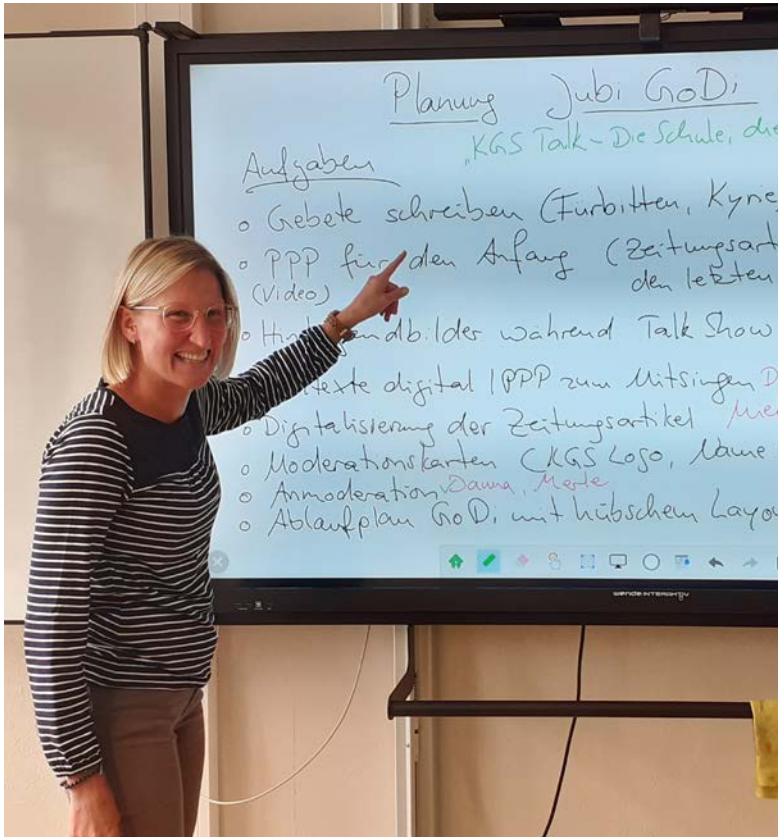 Planung Jubi GoDi
"KGS Talk - Die Schule, die
Aufgaben
Gebete schreiben (Fürbitten, Kyrie
PPP für den Anfang (Zeitungsart
(Video) den letzten
Hin ndbilder während Talk Show
texte digital / PPP zum Mitsingen D
Digitalisierung der Zeitungsartikel Mer
Moderationskarten (KGS Logo, Name
Anmoderation Danna, Merle
Ablaufplan GoDi mit hübschem Layou
wende.INTERAKTIV